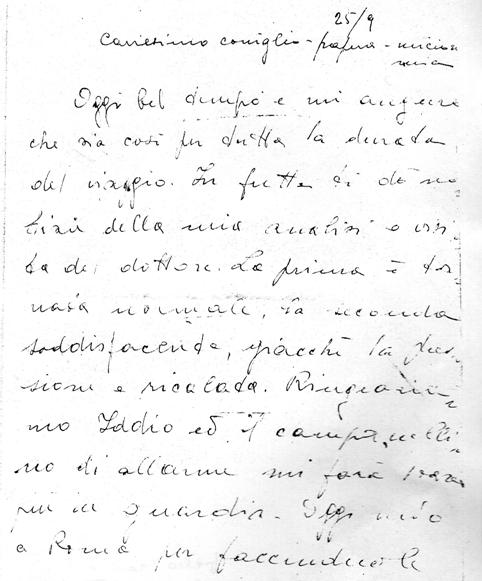 25/9
Carissimo coniglio - papera - micina
mia
Oggi bel tempo e mi auguro
che sia così per tutta la durata
del viaggio. In fretta ti dò no-
tizie della mia analisi e visi-
ta del dottore. La prima è tor-
nata normale, la seconda
soddisfacente, giacchè la pres-
sione è ricalata. Ringrazia-
mo Iddio ed il campanelli-
no di allarme mi farà stare
più in guardia. Oggi
a Roma per